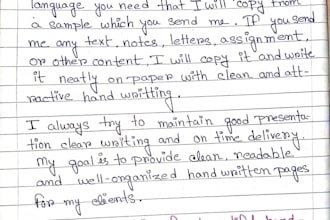 language you need that I will copy from
a sample which you send me. If you send
me any text, notes, letters, assignment,
or other content, I will copy it and write
it neatly on paper with clean and att-
ractive hand writting.
I always try to maintain good presenta-
tion clear writing and on time delivery.
My goal is to provide clean, readable
and well-organized handwritten pages
for my clients.